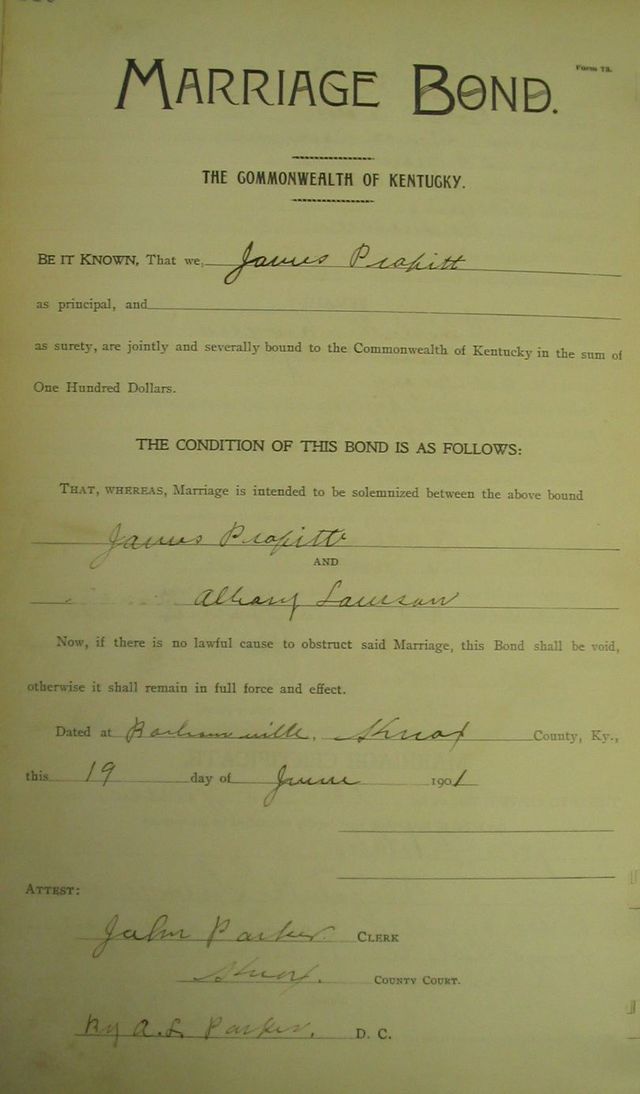 MARRIAGE BOND.
Form 73.
THE COMMONWEALTH OF KENTUCKY.
BE IT KNOWN, That we, James Propitt
as principal, and
as surety, are jointly and severally bound to the Commonwealth of Kentucky in the sum of
One Hundred Dollars.
THE CONDITION OF THIS BOND IS AS FOLLOWS:
THAT, WHEREAS, Marriage is intended to be solemnized between the above bound
James Propitt
AND
Lawson
Now, if there is no lawful cause to obstruct said Marriage, this Bond shall be void,
otherwise it shall remain in full force and effect.
Dated at Barbourville, Knox County, Ky.,
this 19 day of June 1901
ATTEST:
John Parker CLERK
Knox. COUNTY COURT.
By A. L. Parker. D. C.